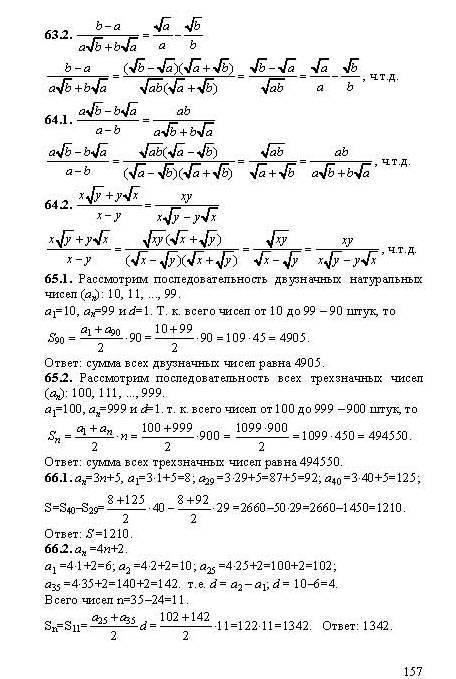 63.2. (b−a)/(a√b+b√a) = √a/a − √b/b
(b−a)/(a√b+b√a) = (√b−√a)(√a+√b)/(√ab(√a+√b)) = (√b−√a)/√ab = √a/a − √b/b, ч.т.д.
64.1. (a√b−b√a)/(a−b) = ab/(a√b+b√a)
(a√b−b√a)/(a−b) = √ab(√a−√b)/((√a−√b)(√a+√b)) = √ab/(√a+√b) = ab/(a√b+b√a), ч.т.д.
64.2. (x√y+y√x)/(x−y) = xy/(x√y−y√x)
(x√y+y√x)/(x−y) = √xy(√x+√y)/((√x−√y)(√x+√y)) = √xy/(√x−√y) = xy/(x√y−y√x), ч.т.д.
65.1. Рассмотрим последовательность двузначных натуральных
чисел (aₙ): 10, 11, ..., 99.
a₁=10, aₙ=99 и d=1. Т. к. всего чисел от 10 до 99 – 90 штук, то
S₉₀ = (a₁+a₉₀)/2 · 90 = (10+99)/2 · 90 = 109·45 = 4905.
Ответ: сумма всех двузначных чисел равна 4905.
65.2. Рассмотрим последовательность всех трехзначных чисел
(aₙ): 100, 111, ..., 999.
a₁=100, aₙ=999 и d=1. т. к. всего чисел от 100 до 999 – 900 штук, то
Sₙ = (a₁+aₙ)/2 · n = (100+999)/2 · 900 = (1099·900)/2 = 1099·450 = 494550.
Ответ: сумма всех трехзначных чисел равна 494550.
66.1. aₙ=3n+5, a₁=3·1+5=8; a₂₉=3·29+5=87+5=92; a₄₀=3·40+5=125;
S=S₄₀–S₂₉= (8+125)/2 · 40 – (8+92)/2 · 29 =2660–50·29=2660–1450=1210.
Ответ: S=1210.
66.2. aₙ =4n+2.
a₁ =4·1+2=6; a₂ =4·2+2=10; a₂₅ =4·25+2=100+2=102;
a₃₅ =4·35+2=140+2=142. т.е. d = a₂ – a₁; d = 10–6=4.
Всего чисел n=35–24=11.
Sₙ=S₁₁= (a₂₅+a₃₅)/2 d = (102+142)/2 ·11=122·11=1342. Ответ: 1342.
157